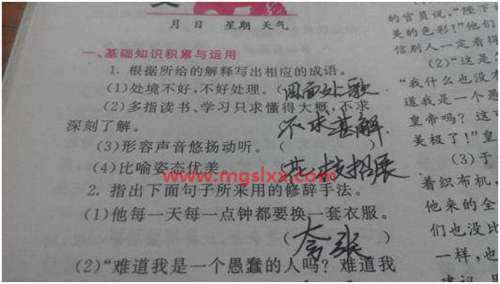 月 日 星期 天气
一、基础知识积累与运用
1. 根据所给的解释写出相应的成语。
(1)处境不好,不好处理。(四面处歌
(2)多指读书、学习只求懂得大概,不求
深刻了解。(不求甚解
(3)形容声音悠扬动听。(
(4)比喻姿态优美 花枝招展
www.mgslxx.com
2. 指出下面句子所采用的修辞手法。
(1)他每一天每一点钟都要换一套衣服。
(夸张
(2)“难道我是一个愚蠢的人吗?难道我
的官员说,“陛下
美的色彩!”他们
信别人一定看得
(2)“这是
“我什么也没
道我是一个愚
皇帝吗?这
美极了!”皇
(3)于
着织布机,
他来的全
们也没比
一样,也